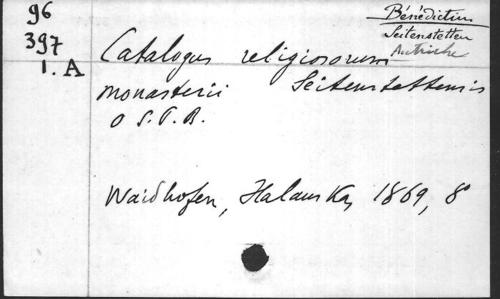 96
397
1. A
Bénédictins
Seitenstetten
Autriche
Catalogus religiosorum
monasterii Seitenstettensis
O S. P. B.
Waidhofen, Halauska, 1869, 8°